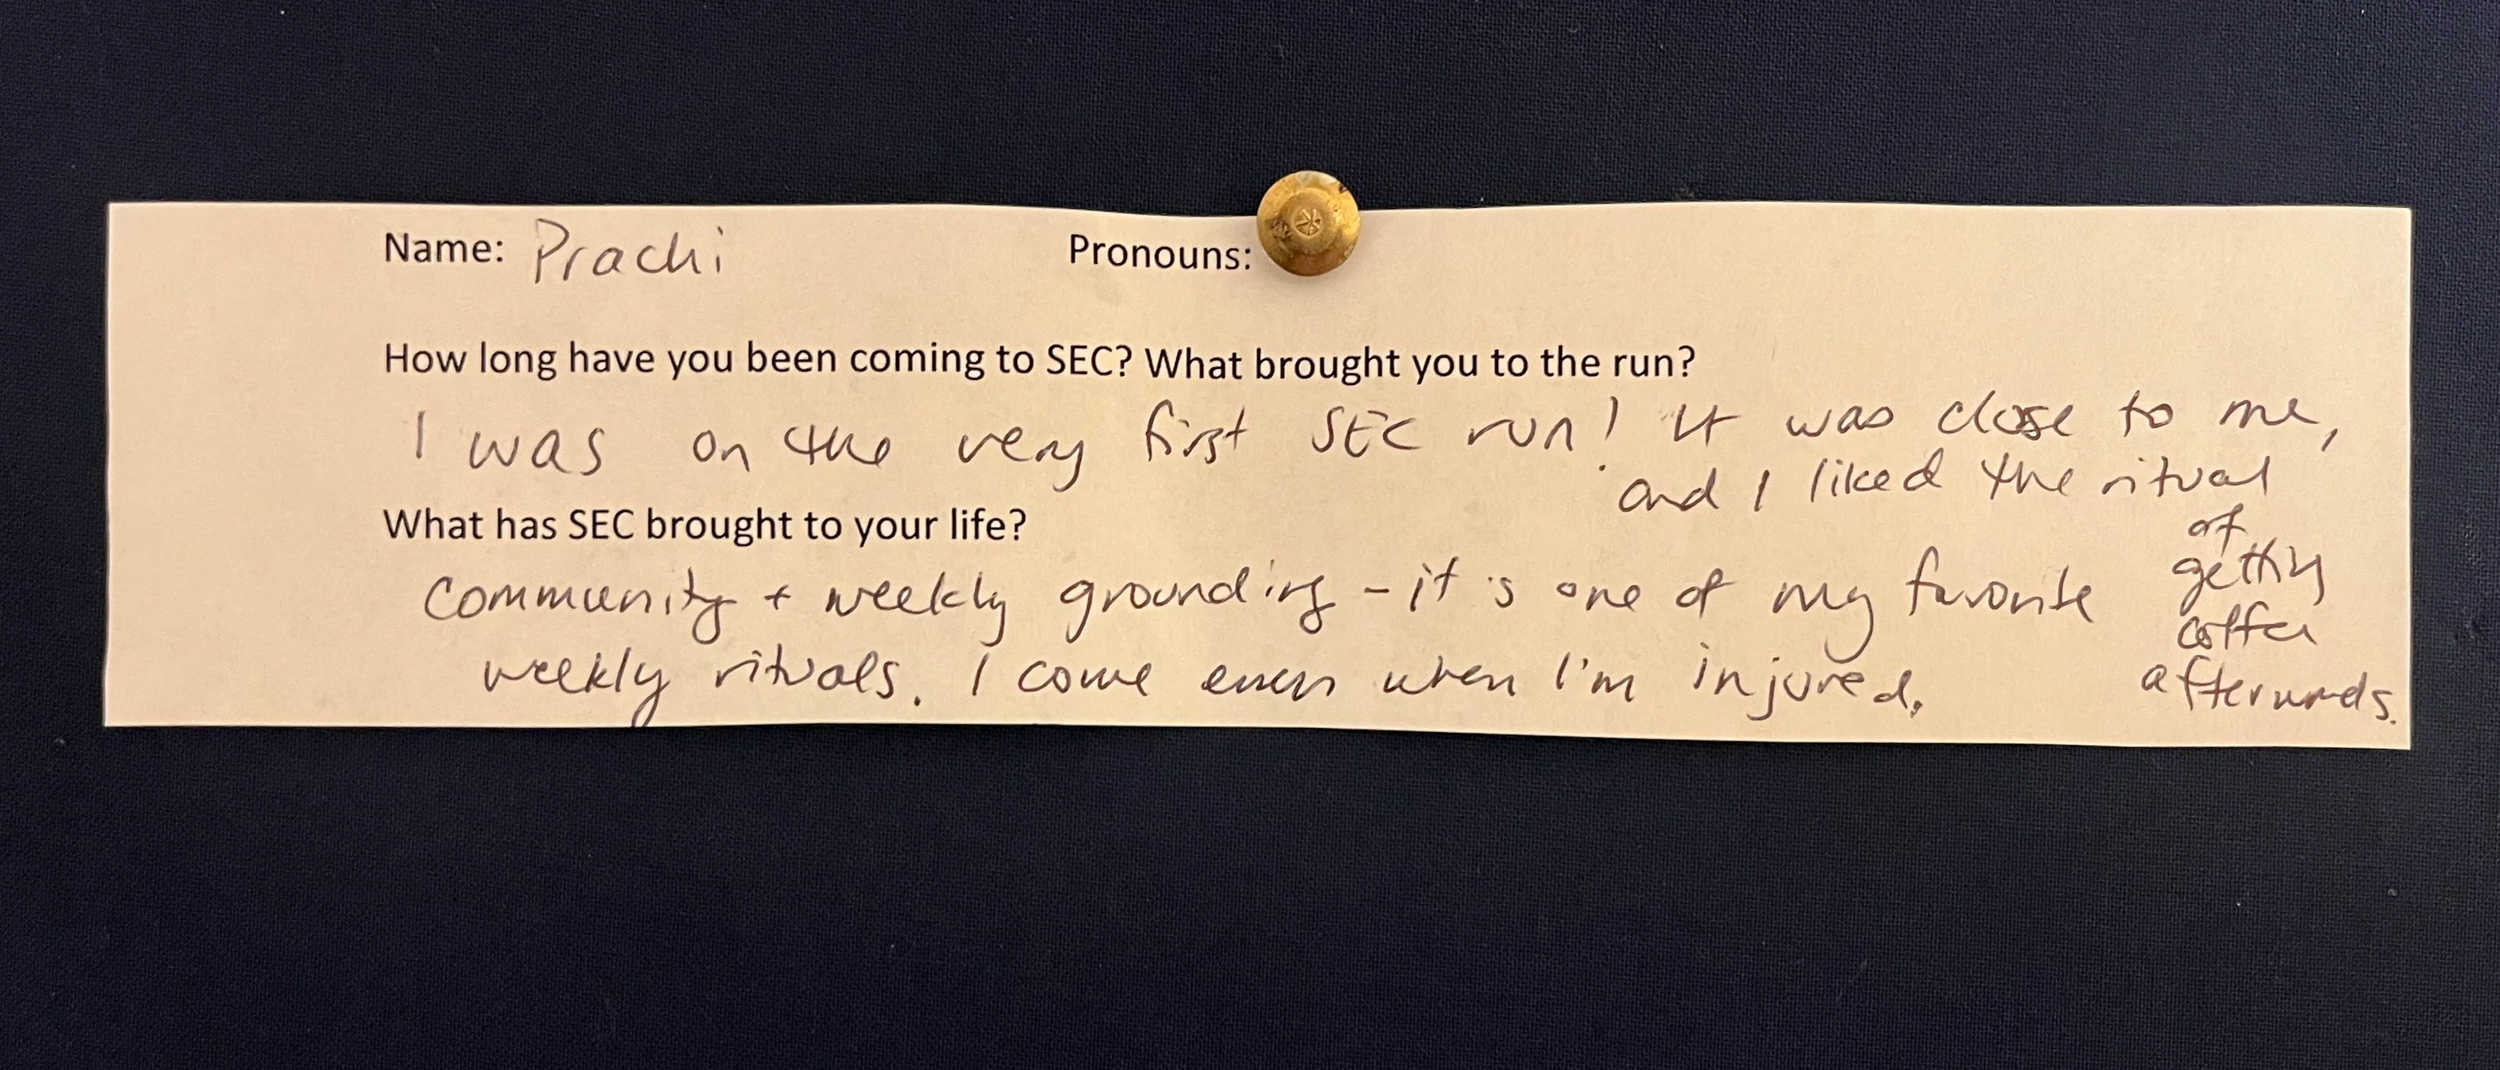 Name: Prachi Pronouns:
How long have you been coming to SEC? What brought you to the run?
I was on the very first SEC run! It was close to me,
and I liked the ritual
of
getting
coffee
afterwards.
What has SEC brought to your life?
Community + weekly grounding - it's one of my favorite
weekly rituals. I come even when I'm injured.